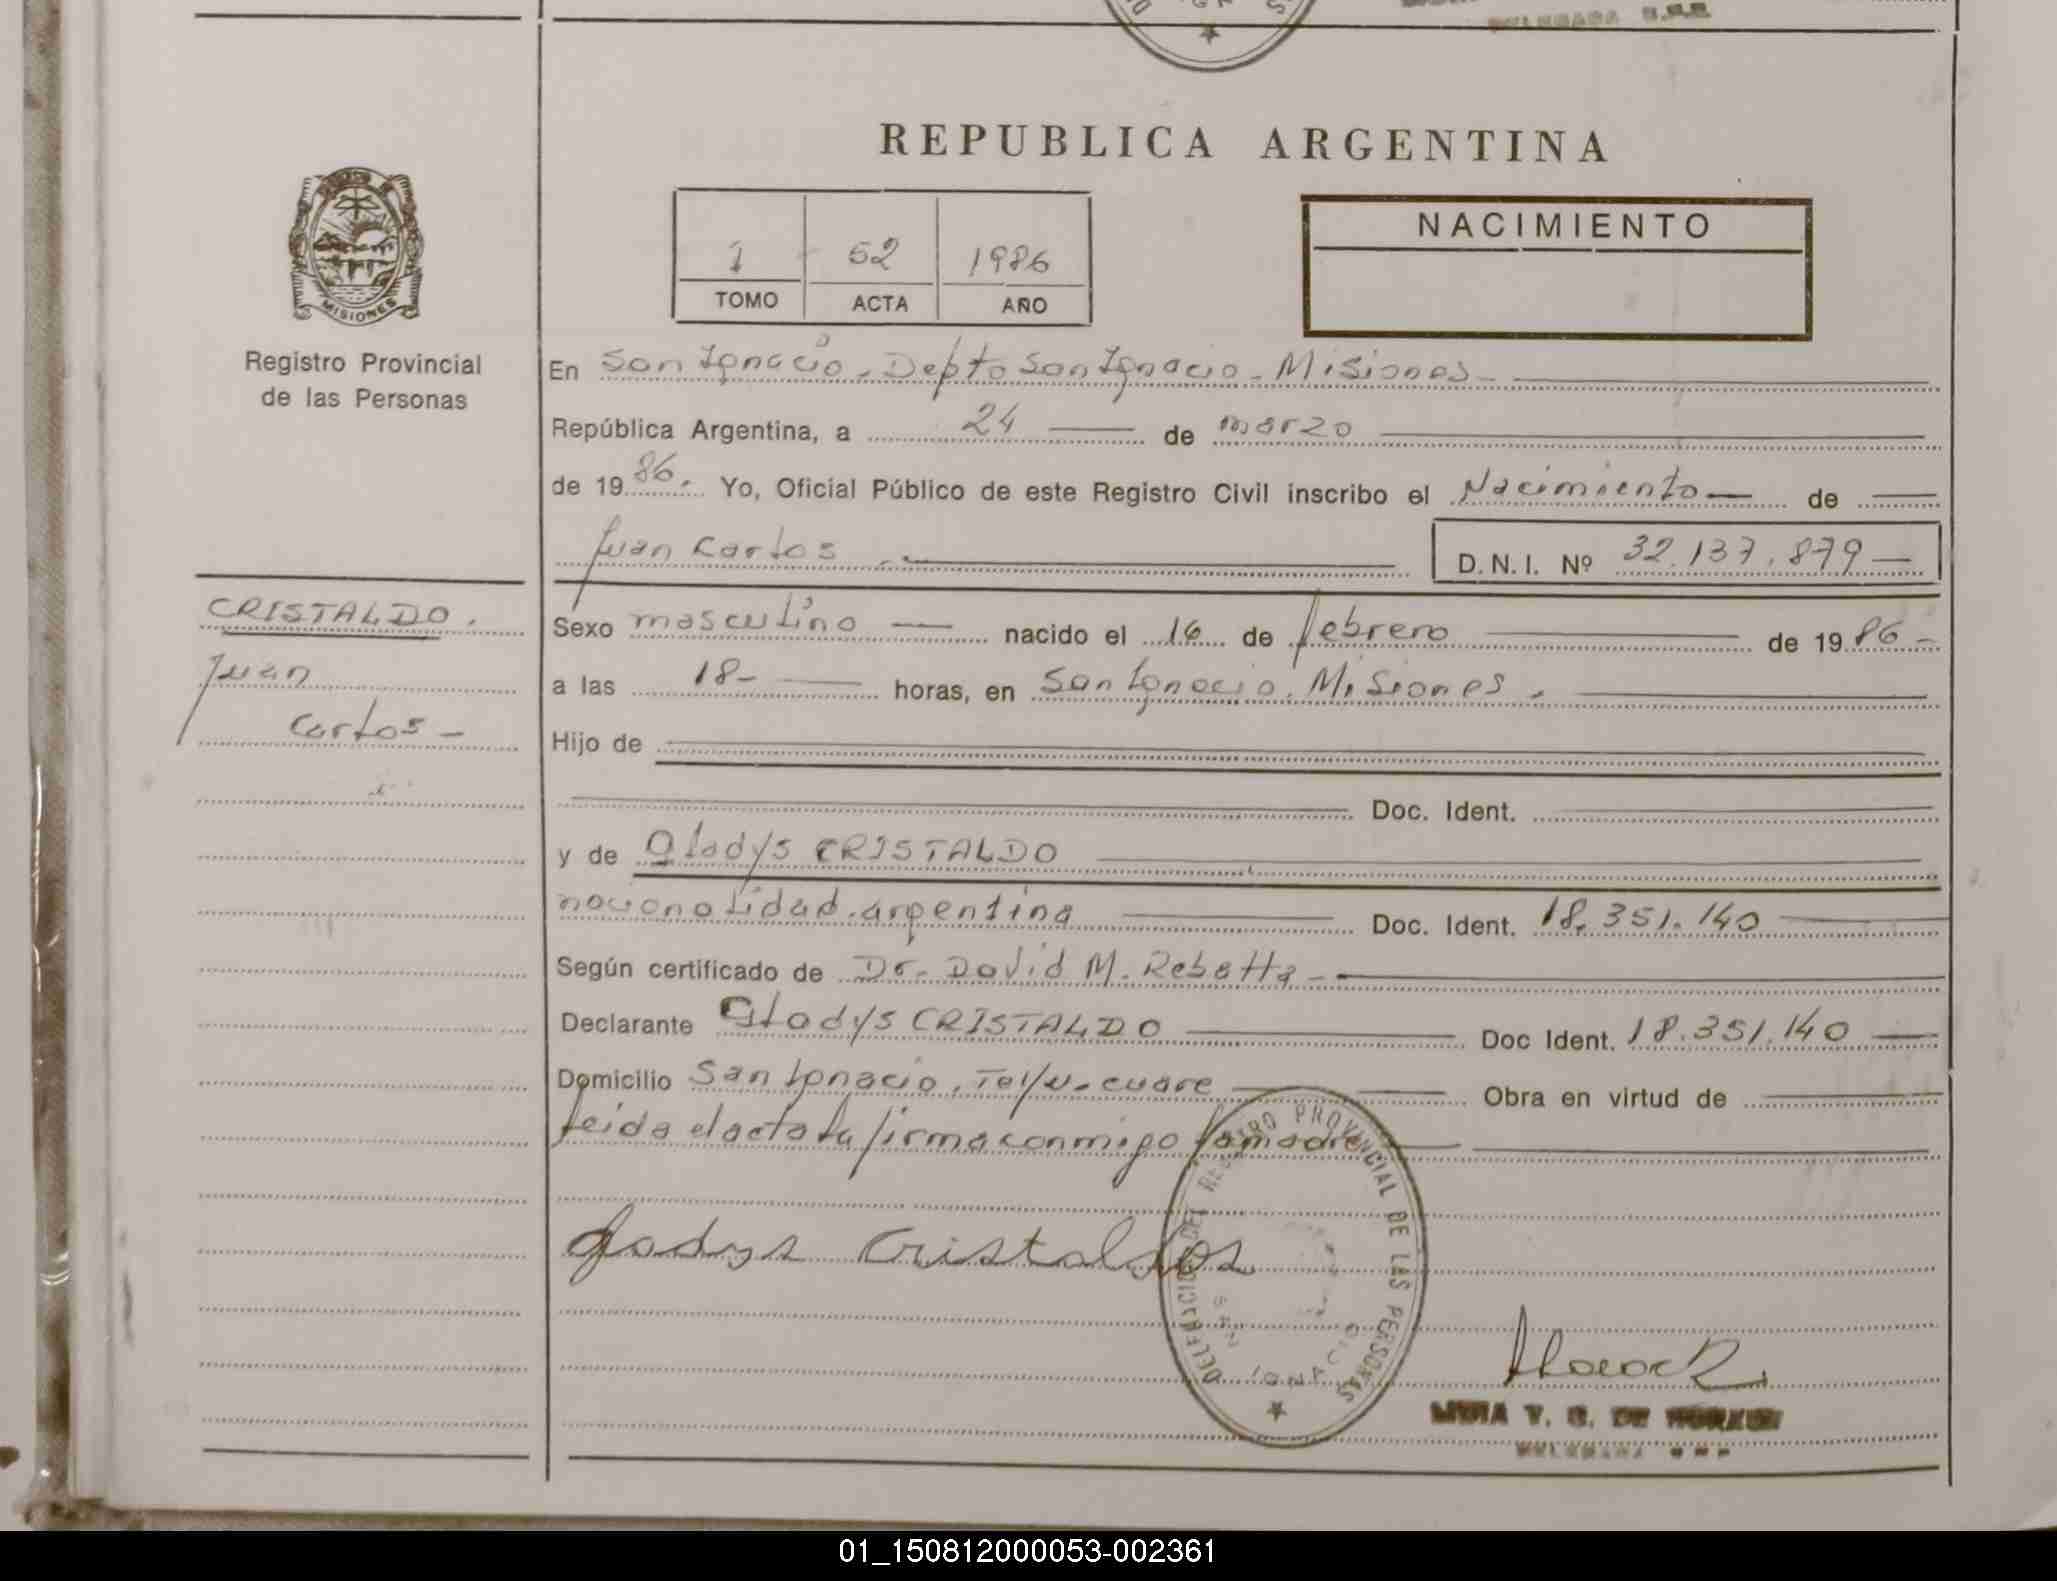 REPUBLICA ARGENTINA
NACIMIENTO
1 52 1986
TOMO ACTA AÑO
MISIONES
Registro Provincial
de las Personas
CRISTALDO.
Juan
Carlos -
En San Ignacio. Depto San Ignacio - Misiones -
República Argentina, a 24 de marzo
de 1986. Yo, Oficial Público de este Registro Civil inscribo el Nacimiento de
Juan Carlos. D.N.I. Nº 32.137.879 -
Sexo masculino nacido el 16 de febrero de 1986 -
a las 18 - horas, en San Ignacio. Misiones.
Hijo de
Doc. Ident.
y de Gladys CRISTALDO
nacionalidad. argentina Doc. Ident. 18.351.140
Según certificado de Dr. David M. Rebatta -
Declarante Gladys CRISTALDO Doc Ident. 18.351.140
Domicilio San Ignacio. Teyu-cuare Obra en virtud de
Leida el acta la firma conmigo la madre
Gladys Cristaldo
DELEGACION DEL REGISTRO PROVINCIAL DE LAS PERSONAS
SAN IGNACIO
DE
01_150812000053-002361